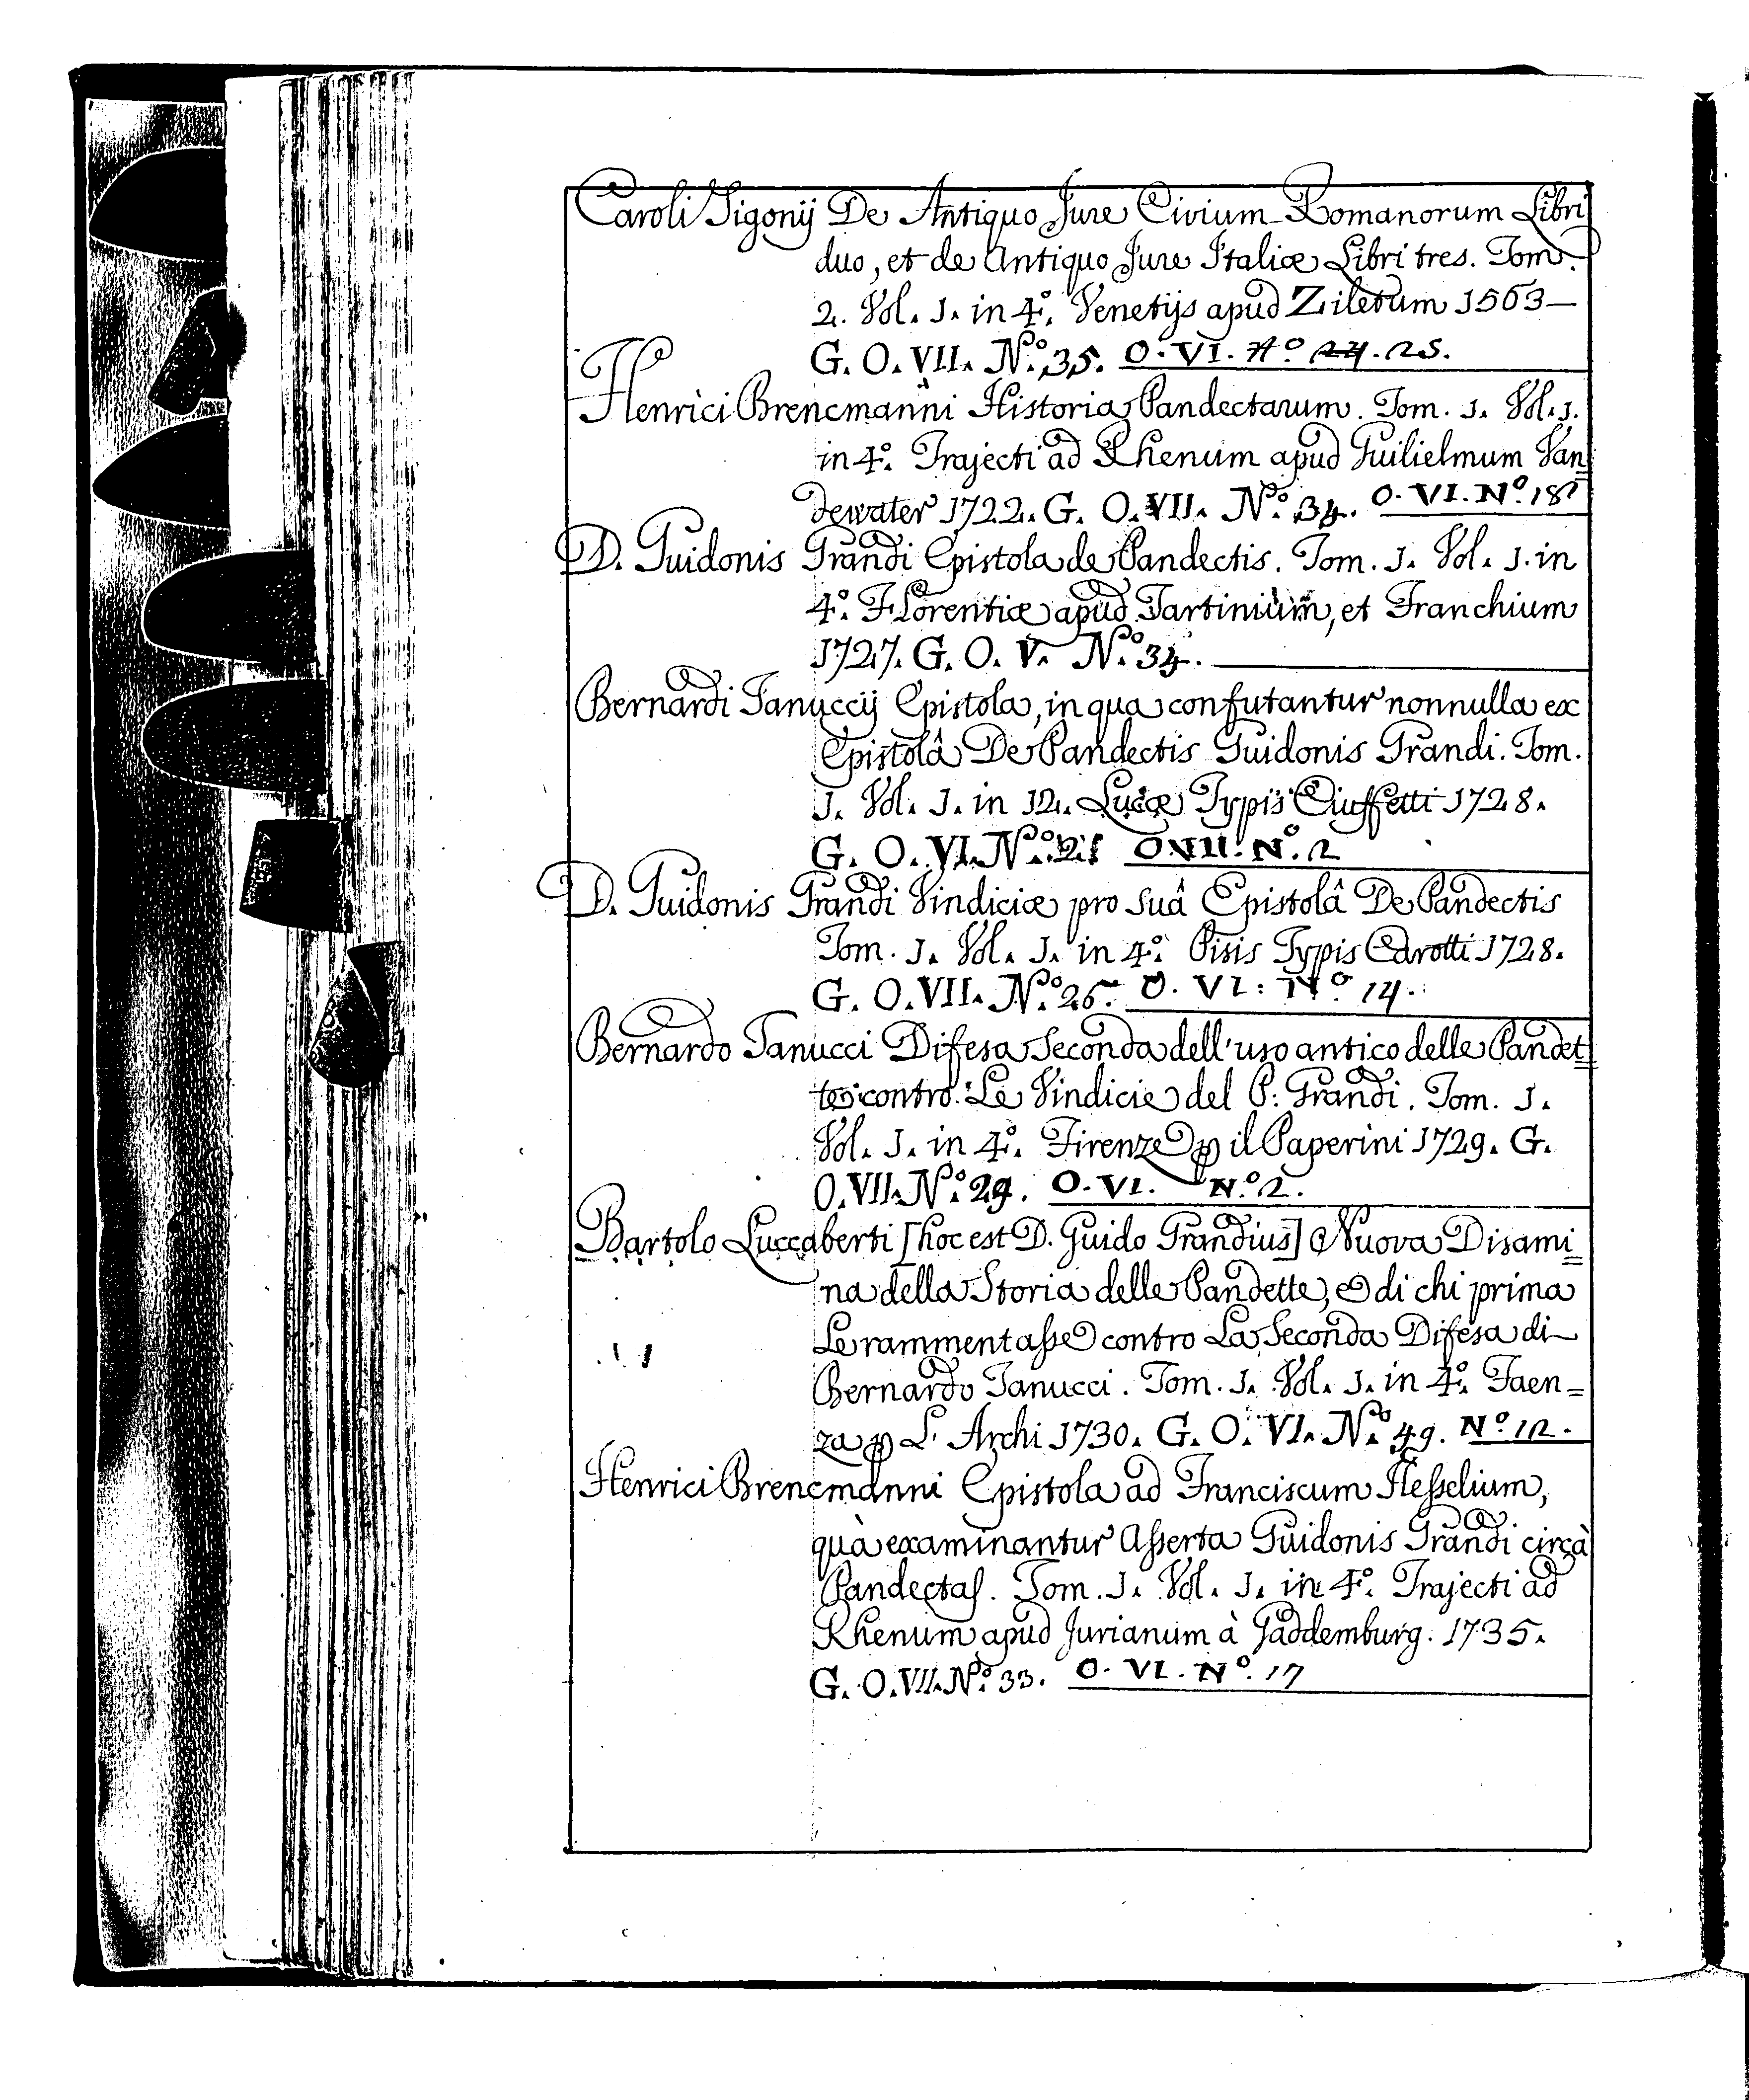 Caroli Sigonij De Antiquo Jure Civium Romanorum Libri
duo, et de Antiquo Jure Italiæ Libri tres. Tom.
2. Vol. 1. in 4.° Venetijs apud Ziletum 1563
G. O. VII. N.° 35. O. VI. N° 24. 25.
Henrici Brencmanni Historia Pandectarum. Tom. 1. Vol. 1.
in 4.° Trajecti ad Rhenum apud Guilielmum Van=
dewater 1722. G. O. VII. N.° 34. O. VI. N.° 18
D. Guidonis Grandi Epistola de Pandectis. Tom. 1. Vol. 1. in
4.° Florentiæ apud Tartinium, et Franchium
1727. G. O. V. N.° 34.
Bernardi Tanuccij Epistola, in qua confutantur nonnulla ex
Epistolâ De Pandectis Guidonis Grandi. Tom.
1. Vol. 1. in 12. Lucæ Typis Ciuffetti 1728.
G. O. VI. N.° 21 O. VII. N.° 2
D. Guidonis Grandi Vindiciæ pro suâ Epistolâ De Pandectis
Tom. 1. Vol. 1. in 4.° Pisis Typis Carotti 1728.
G. O. VII. N.° 26. O. VI. N.° 14.
Bernardo Tanucci Difesa Seconda dell'uso antico delle Pandet=
te contro Le Vindicie del P. Grandi. Tom. 1.
Vol. 1. in 4.° Firenze p il Paperini 1729. G.
O. VII. N.° 29. O. VI. N.° 2.
Bartolo Luccaberti [hoc est D. Guido Grandius] Nuova Disami=
na della Storia delle Pandette, e di chi prima
Le rammentasse contro La Seconda Difesa di
Bernardo Tanucci. Tom. 1. Vol. 1. in 4.° Faen=
za p L' Archi 1730. G. O. VI. N.° 49. N.° 12.
Henrici Brencmanni Epistola ad Franciscum Hesselium,
quà examinantur Asserta Guidonis Grandi circà
Pandectas. Tom. 1. Vol. 1. in 4.° Trajecti ad
Rhenum apud Jurianum à Paddemburg. 1735.
G. O. VII. N.° 33. O. VI. N.° 17